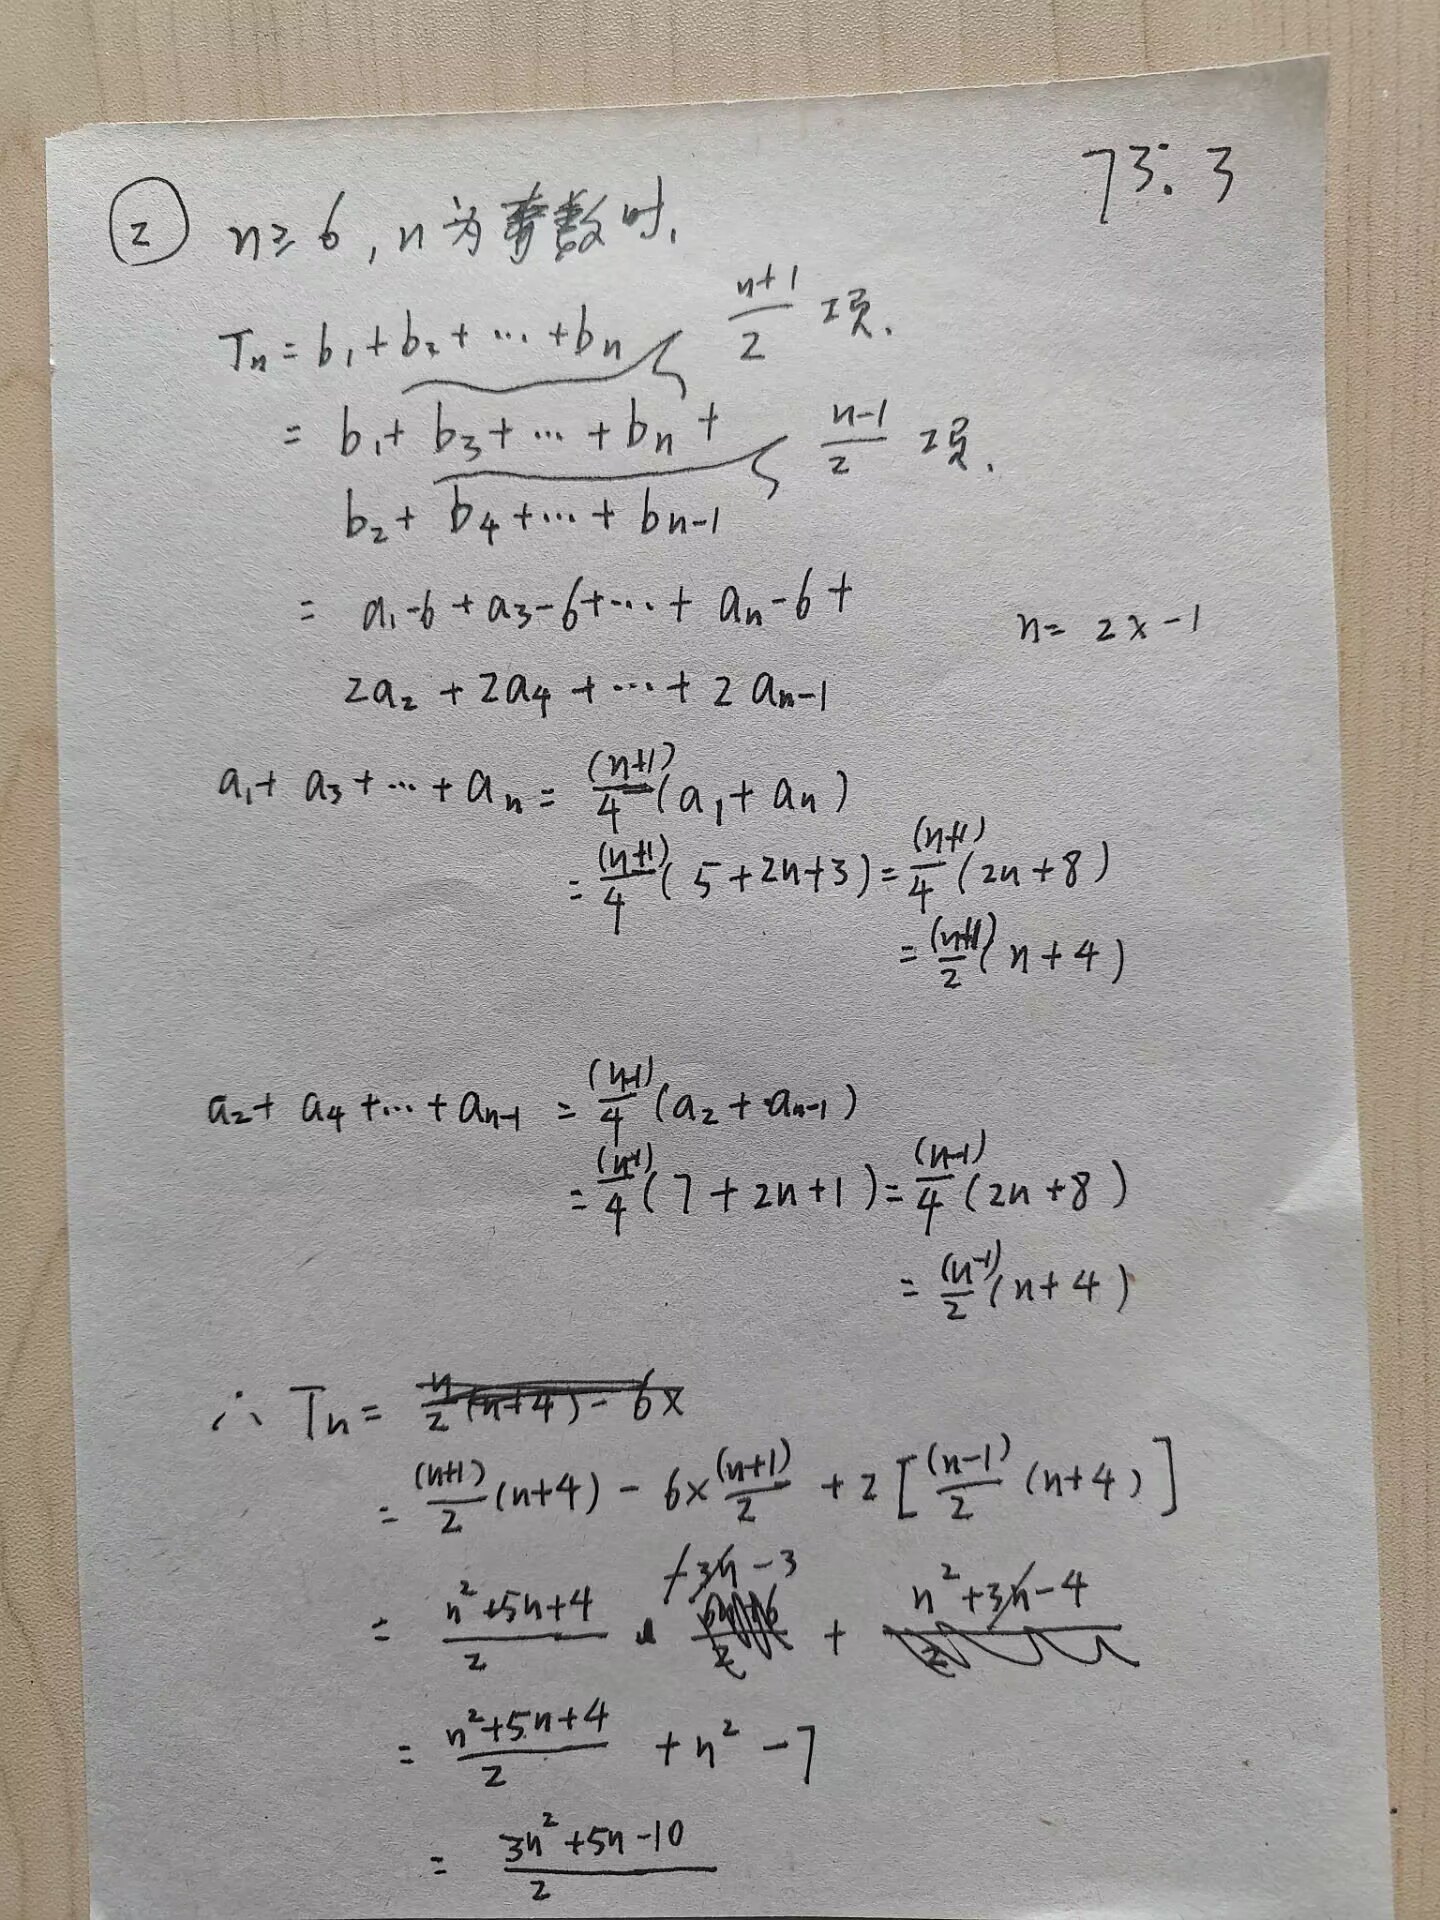 73:3
② n≥6,n为奇数时,
Tn=b₁+b₂+…+bn (n+1)/2 项.
=b₁+b₃+…+bn+ (n-1)/2 项.
b₂+b₄+…+bn-1
=a₁-6+a₃-6+…+an-6+
n=2x-1
2a₂+2a₄+…+2an-1
a₁+a₃+…+an=(n+1)/4(a₁+an)
=(n+1)/4(5+2n+3)=(n+1)/4(2n+8)
=(n+1)/2(n+4)
a₂+a₄+…+an-1=(n-1)/4(a₂+an-1)
=(n-1)/4(7+2n+1)=(n-1)/4(2n+8)
=(n-1)/2(n+4)
∴Tn=n/2(n+4)-6x
=(n+1)/2(n+4)-6×(n+1)/2+2[(n-1)/2(n+4)]
=(n²+5n+4)/2 -3n-3+n²+3n-4
=(n²+5n+4)/2+n²-7
=(3n²+5n-10)/2